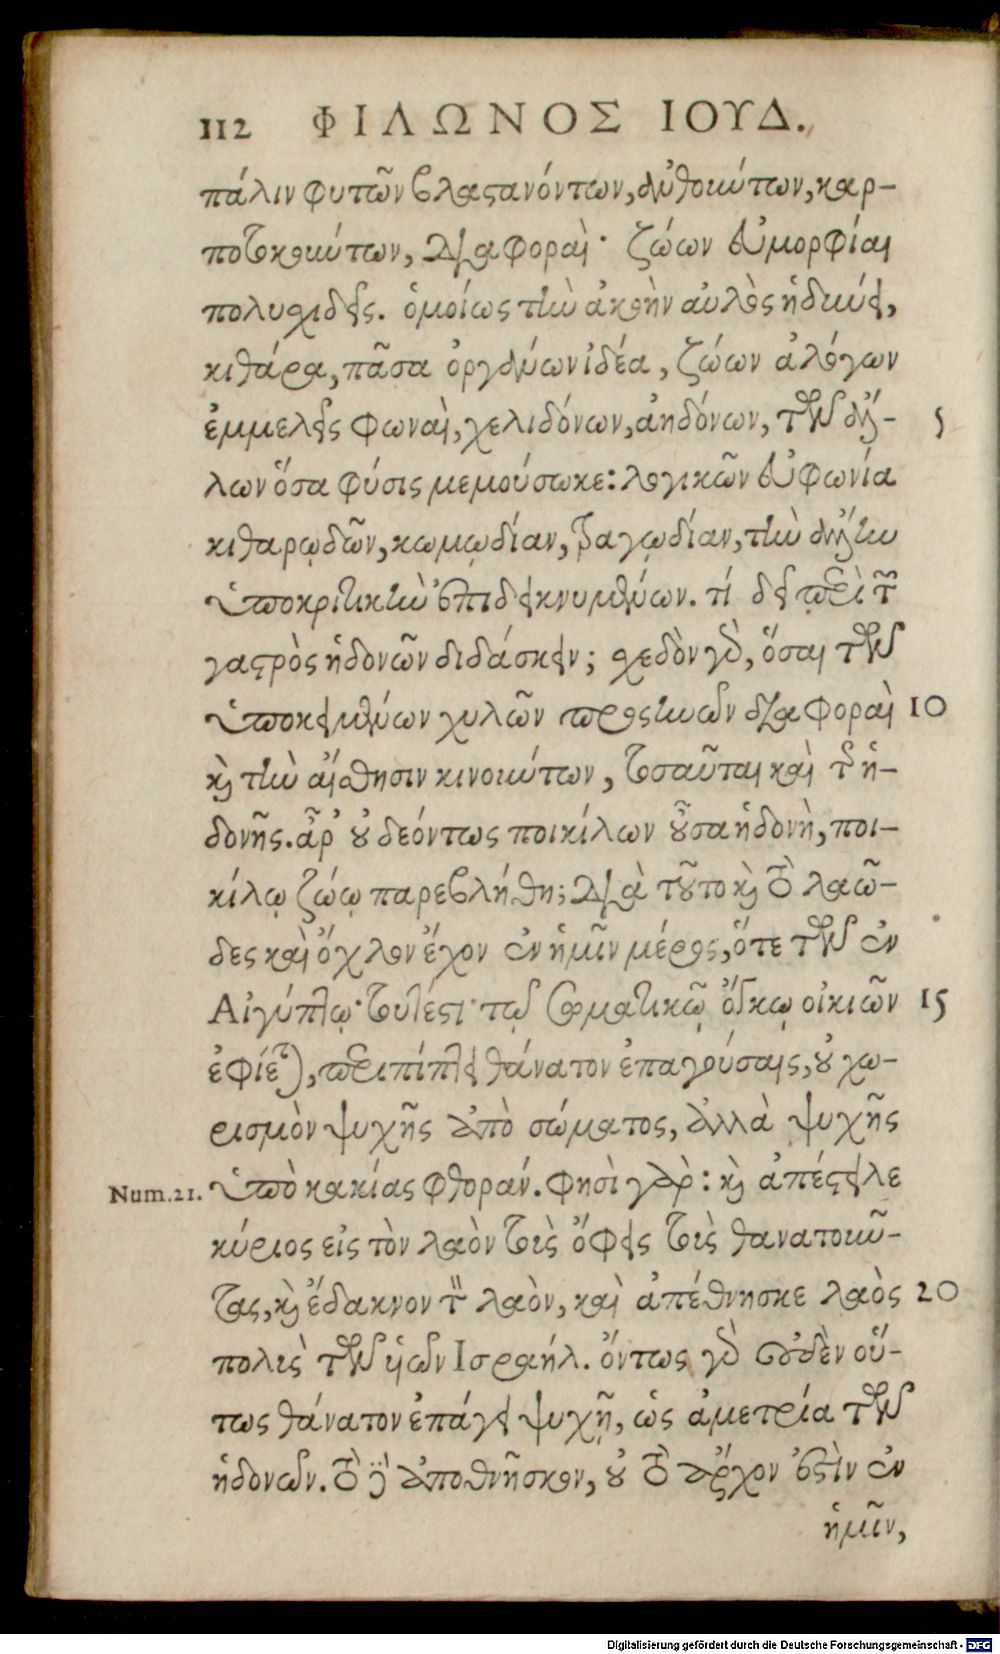 112 ΦΙΛΩΝΟΣ ΙΟΥΔ.
πάλιν φυτῶν βλαστανόντων, ἀνθούντων, καρ-
ποτοκούντων, διαφοραὶ· ζώων εὐμορφίαι
πολυχιδεῖς. ὁμοίως τὴν ἀκοὴν αὐλὸς ἡδύνει,
κιθάρα, πᾶσα ὀργάνων ἰδέα, ζώων ἀλόγων
ἐμμελεῖς φωναὶ, χελιδόνων, ἀηδόνων, τῶν ἄλ- 5
λων ὅσα φύσις μεμούσωκε: λογικῶν εὐφωνία
κιθαρῳδῶν, κωμῳδίαν, τραγῳδίαν, τὴν ἄλλην
ὑποκριτικὴν ἐπιδεικνυμένων. τί δεῖ περὶ τῶν
γαστρὸς ἡδονῶν διδάσκειν; σχεδὸν γὰρ, ὅσαι τῶν
ὑποκειμένων χυλῶν προσηνῶν διαφοραὶ 10
καὶ τὴν αἴσθησιν κινούντων, τοσαῦται καὶ τῆς ἡ-
δονῆς. ἆρ' οὐ δεόντως ποικίλων οὖσα ἡδονὴ, ποι-
κίλῳ ζώῳ παρεβλήθη; διὰ τοῦτο καὶ τὸ λαῶ-
δες καὶ ὄχλον ἔχον ἐν ἡμῖν μέρος, ὅτε τῶν ἐν
Αἰγύπτῳ· τουτέστι· τῷ σωματικῷ ὄγκῳ οἰκιῶν 15
ἐφίεται, περιπίπτει θάνατον ἐπαγούσαις, οὐ χω-
ρισμὸν ψυχῆς ἀπὸ σώματος, ἀλλὰ ψυχῆς
Num.21. ὑπὸ κακίας φθοράν. φησὶ γὰρ: καὶ ἀπέστειλε
κύριος εἰς τὸν λαὸν τοὺς ὄφεις τοὺς θανατοῦν-
τας, καὶ ἔδακνον τὸν λαὸν, καὶ ἀπέθνησκε λαὸς 20
πολὺς τῶν υἱῶν Ισραήλ. ὄντως γὰρ οὐδὲν οὕ-
τως θάνατον ἐπάγει ψυχῇ, ὡς ἀμετρία τῶν
ἡδονῶν. τὸ δὲ ἀποθνῆσκον, οὐ τὸ ἄρχον ἐστὶν ἐν
ἡμῖν,
Digitalisierung gefördert durch die Deutsche Forschungsgemeinschaft - DFG